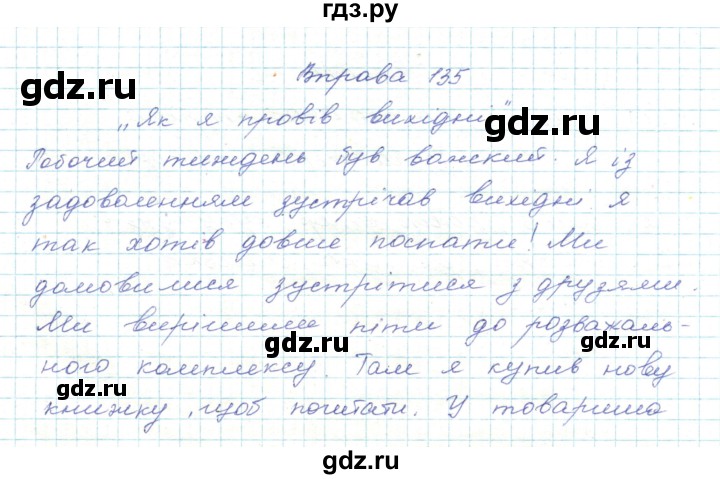 гдз.ру
Вправа 135
„Як я провів вихідні"
Робочий тиждень був важкий. Я із
задоволенням зустрічав вихідні я
так хотів довше поспати! Ми
домовилися зустрітися з друзями.
Ми вирішили піти до розважаль-
ного комплексу. Там я купив нову
книжку, щоб почитати. У товариша
gdz.ru
gdz.ru
gdz.ru
gdz.ru
gdz.ru
gdz.ru
gdz.ru
gdz.ru
gdz.ru
gdz.ru
gdz.ru
gdz.ru